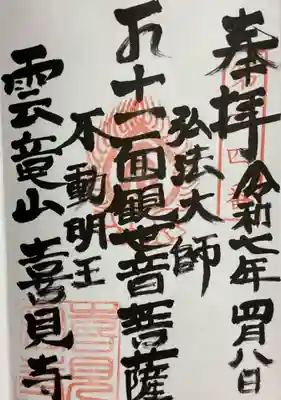 奉拝
令和七年四月八日
弘法大師
十一面観世音菩薩
不動明王
雲竜山 喜見寺